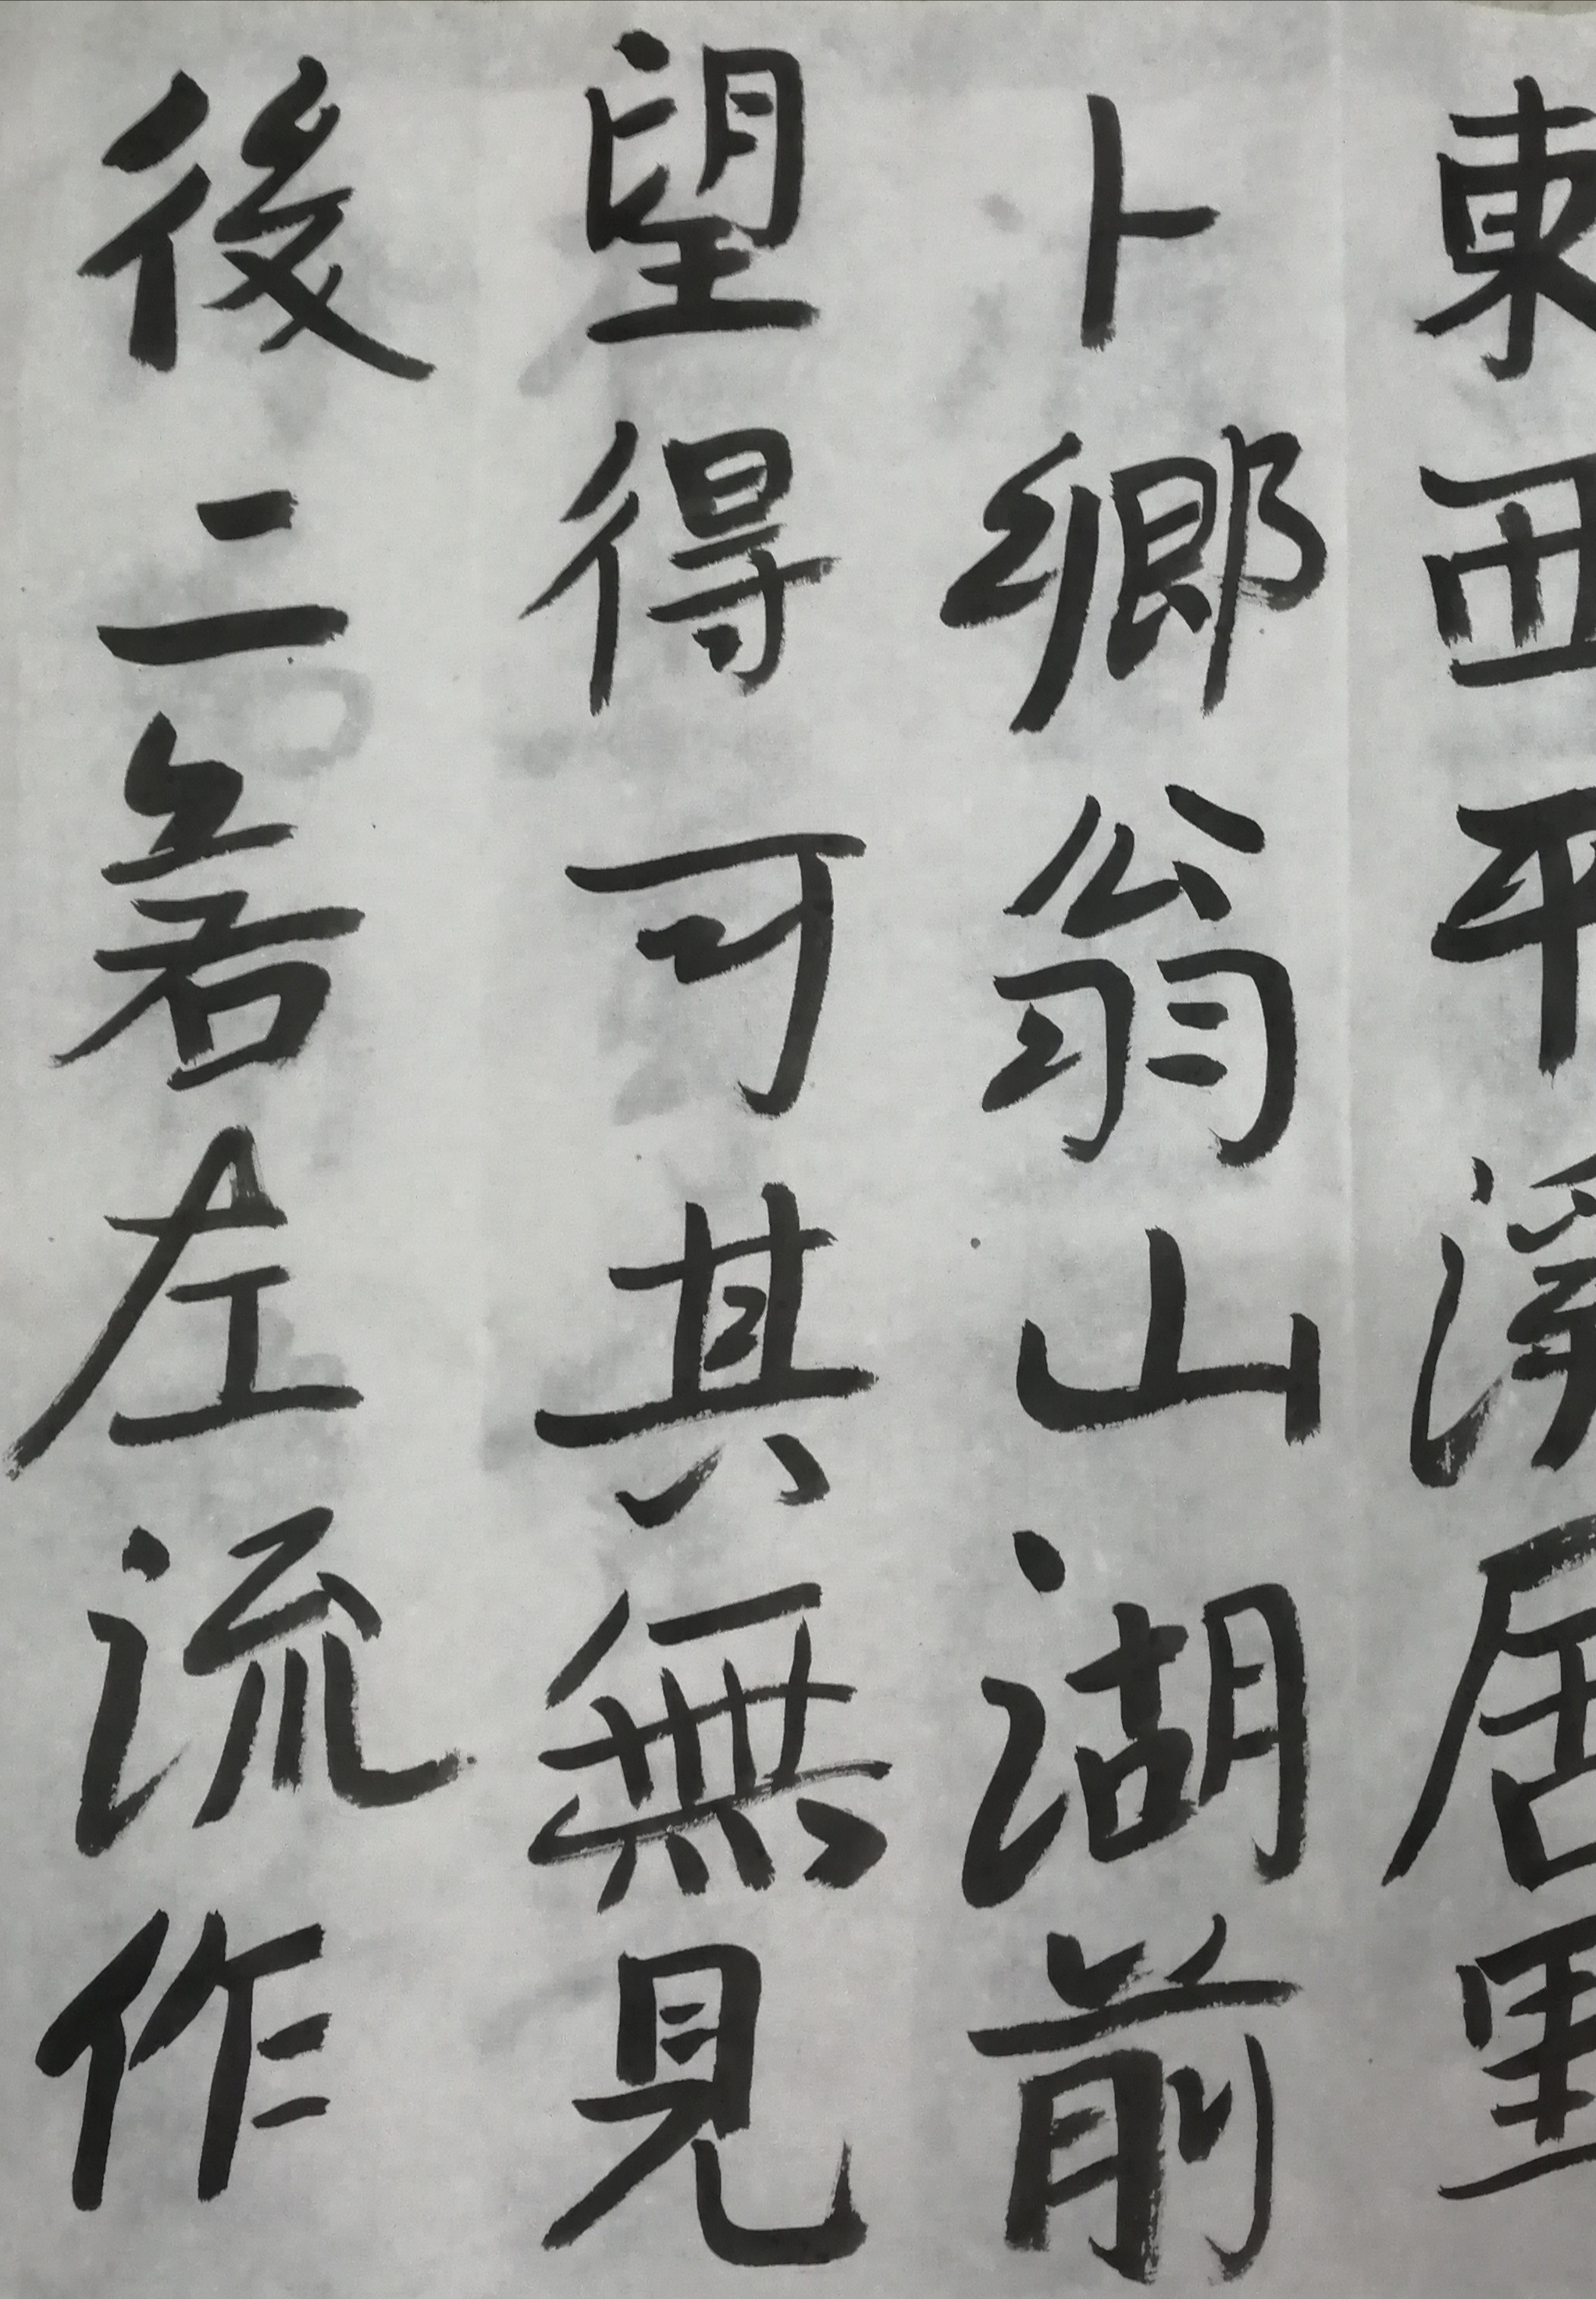 東西平淨居里
卜鄉翁山湖前
望得可其無見
後二若左流作